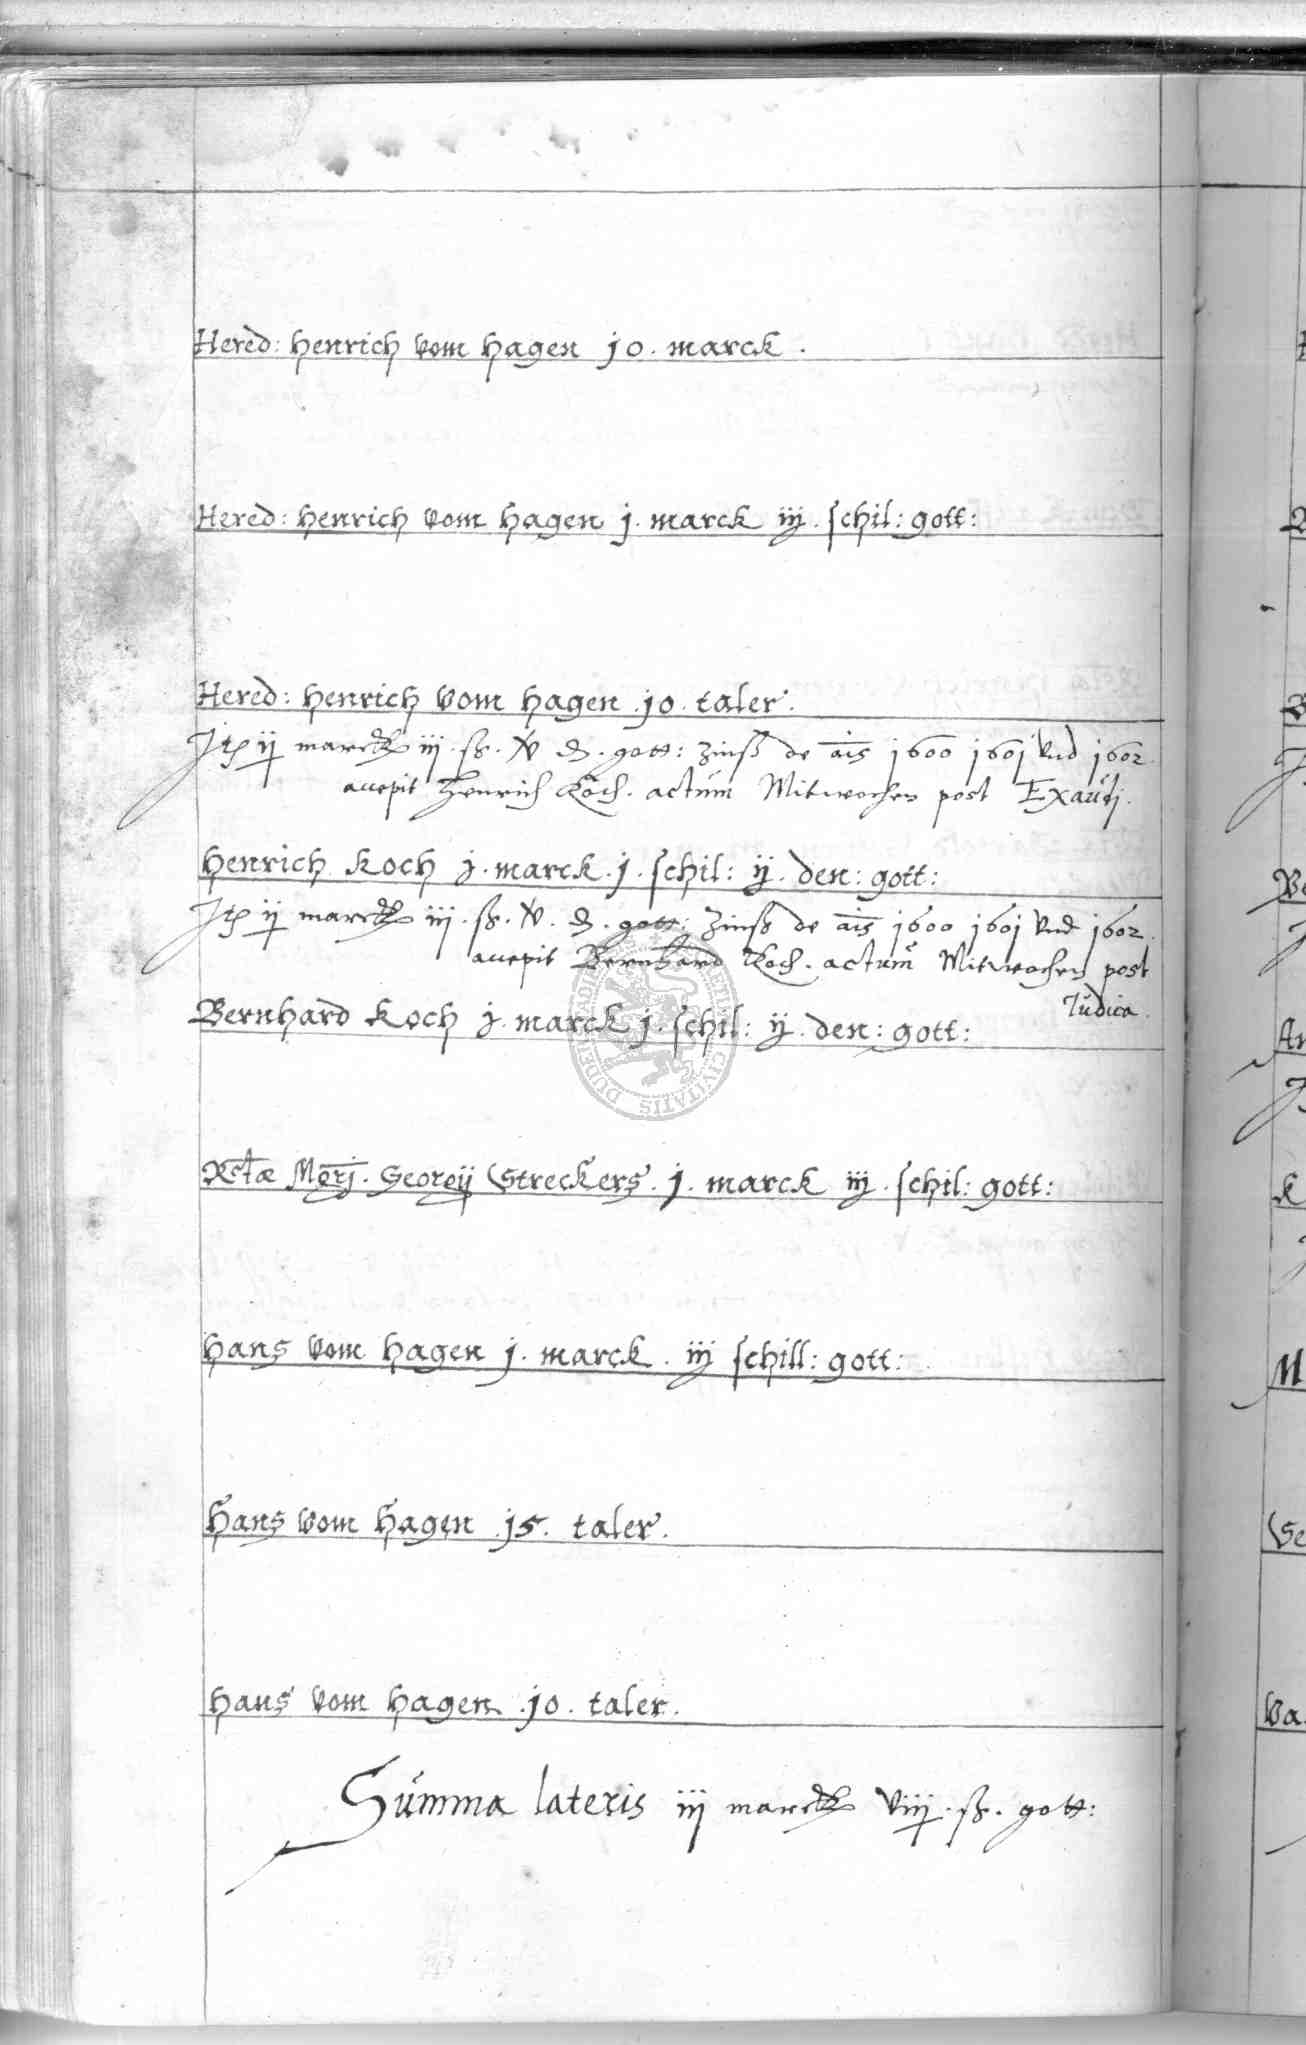 Hered: Henrich vom Hagen 10. marck.
Hered: Henrich vom Hagen j. marck iij. schil: gott:
Hered: Henrich vom Hagen .10. taler.
marck iij. ß. gott: Zinß de ais 1600 1601 vnd 1602.
accepit Henrich Koch. actum Mitwochen post Exaudj.
Henrich Koch j. marck. j. schil: ij. den: gott:
marck iij. ß. gott: Zinß de ais 1600 1601 vnd 1602.
accepit Bernhard Koch. actum Mitwochen post
Judica.
Bernhard Koch j. marck j. schil: ij. den: gott:
Rctæ Mgrj. Georgij Streckers. j. marck iij. schil: gott:
Hans vom Hagen j. marck. iij schill: gott:
Hans vom Hagen .15. taler.
Hans vom Hagen .10. taler.
Summa lateris iij marck viiij. ß. gott:
CIVITATIS